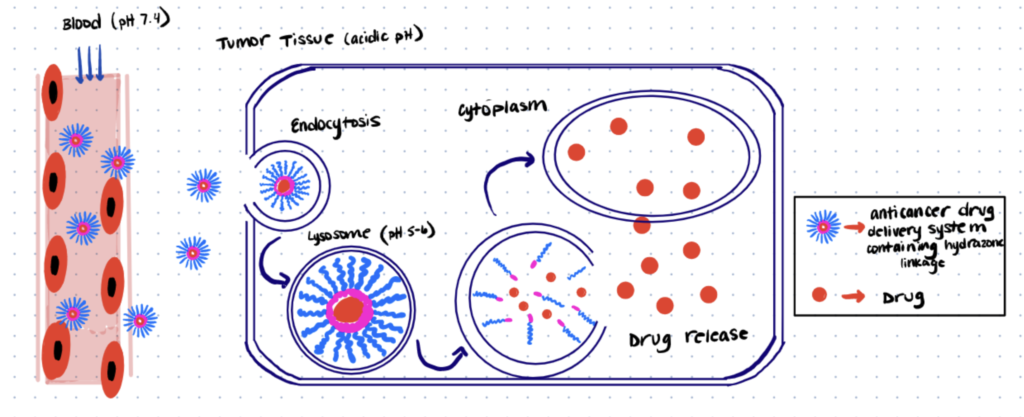 Blood (pH 7.4)
Tumor Tissue (acidic pH)
Endocytosis
Cytoplasm
Lysosome (pH 5-6)
Drug release
anticancer drug
delivery system
containing hydrazone
linkage
Drug